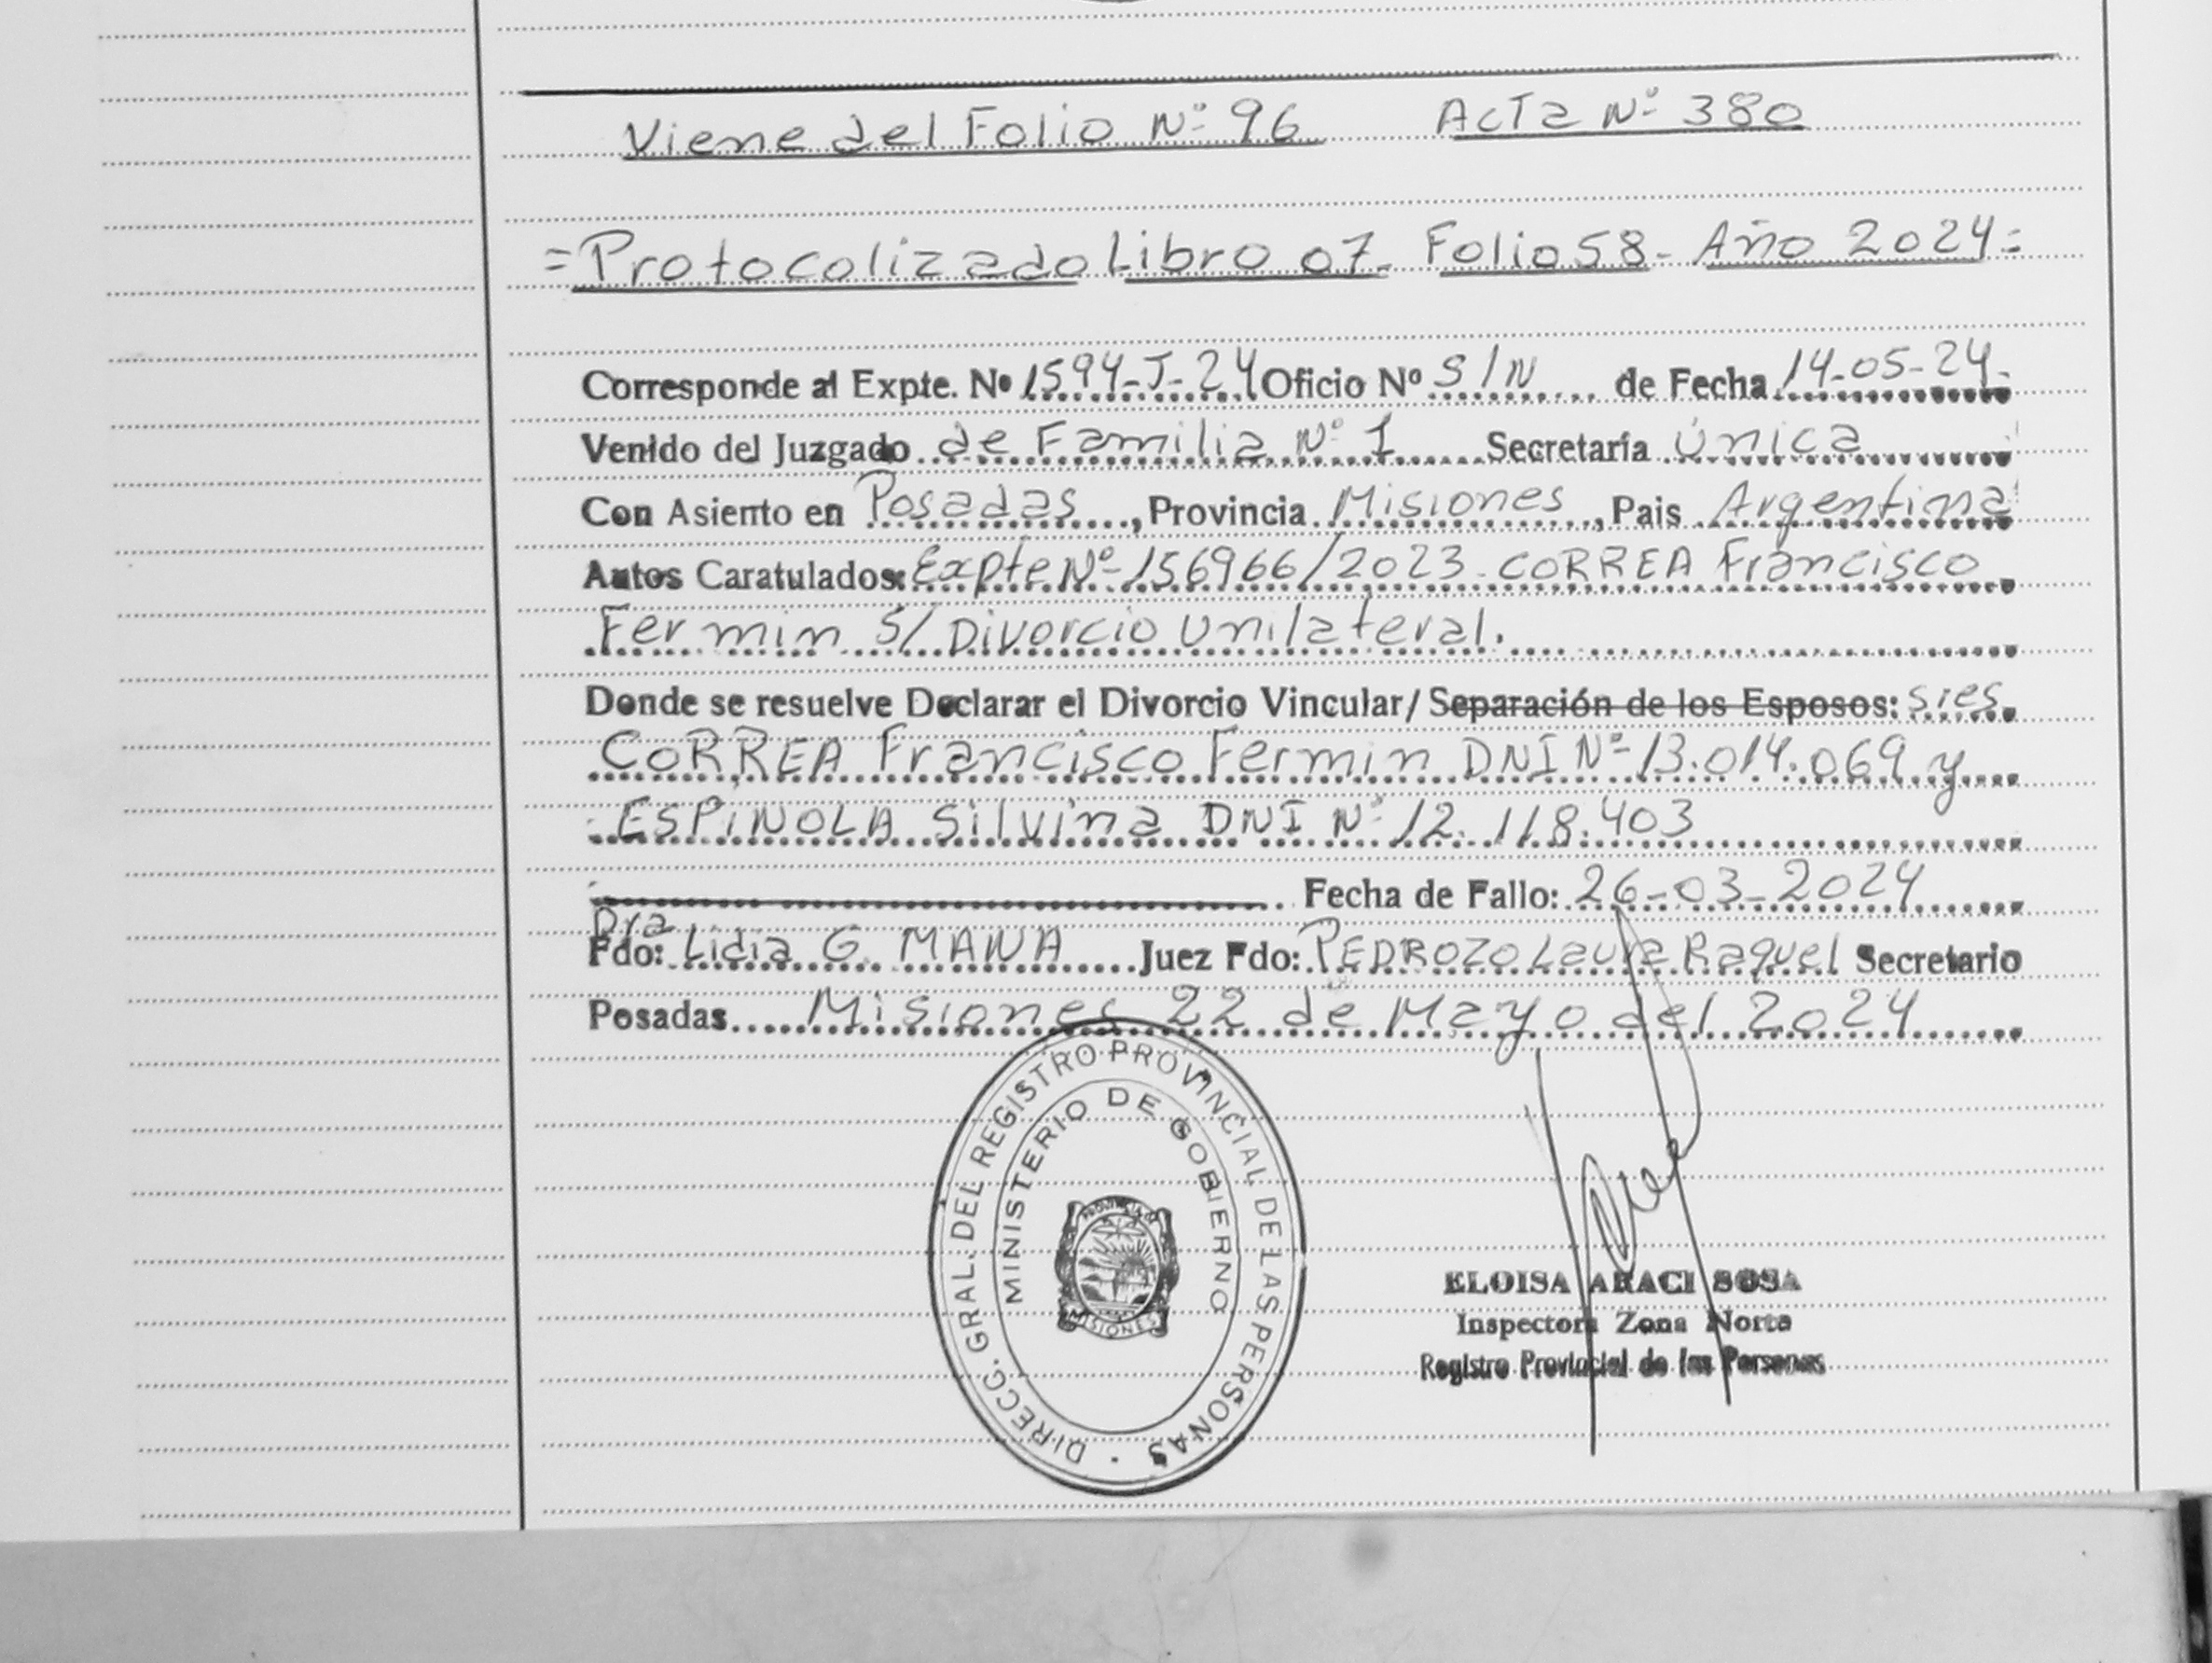 Viene del Folio Nº 96 Acta Nº 380
=Protocolizado Libro 07- Folio 58- Año 2024=
Corresponde al Expte. Nº 1594-J-24 Oficio Nº S/N de Fecha 14-05-24.
Venido del Juzgado de Familia Nº 1 Secretaría Única
Con Asiento en Posadas, Provincia Misiones, Pais Argentina
Autos Caratulados: Expte Nº 156966/2023 - CORREA Francisco
Fermin S/ Divorcio Unilateral.
Donde se resuelve Declarar el Divorcio Vincular/ Separación de los Esposos: sres.
CORREA Francisco Fermin DNI Nº 13.014.069 y
ESPINOLA Silvina DNI Nº 12.118.403
Fecha de Fallo: 26-03-2024
Dra
Fdo: Lidia G. MANA Juez Fdo: PEDROZO Laura Raquel Secretario
Posadas Misiones 22 de Mayo del 2024
DIRECC. GRAL. DEL REGISTRO PROVINCIAL DE LAS PERSONAS
MINISTERIO DE GOBIERNO
PROVINCIA DE
MISIONES
ELOISA ARACI SOSA
Inspectora Zona Norte
Registro Provincial de las Personas